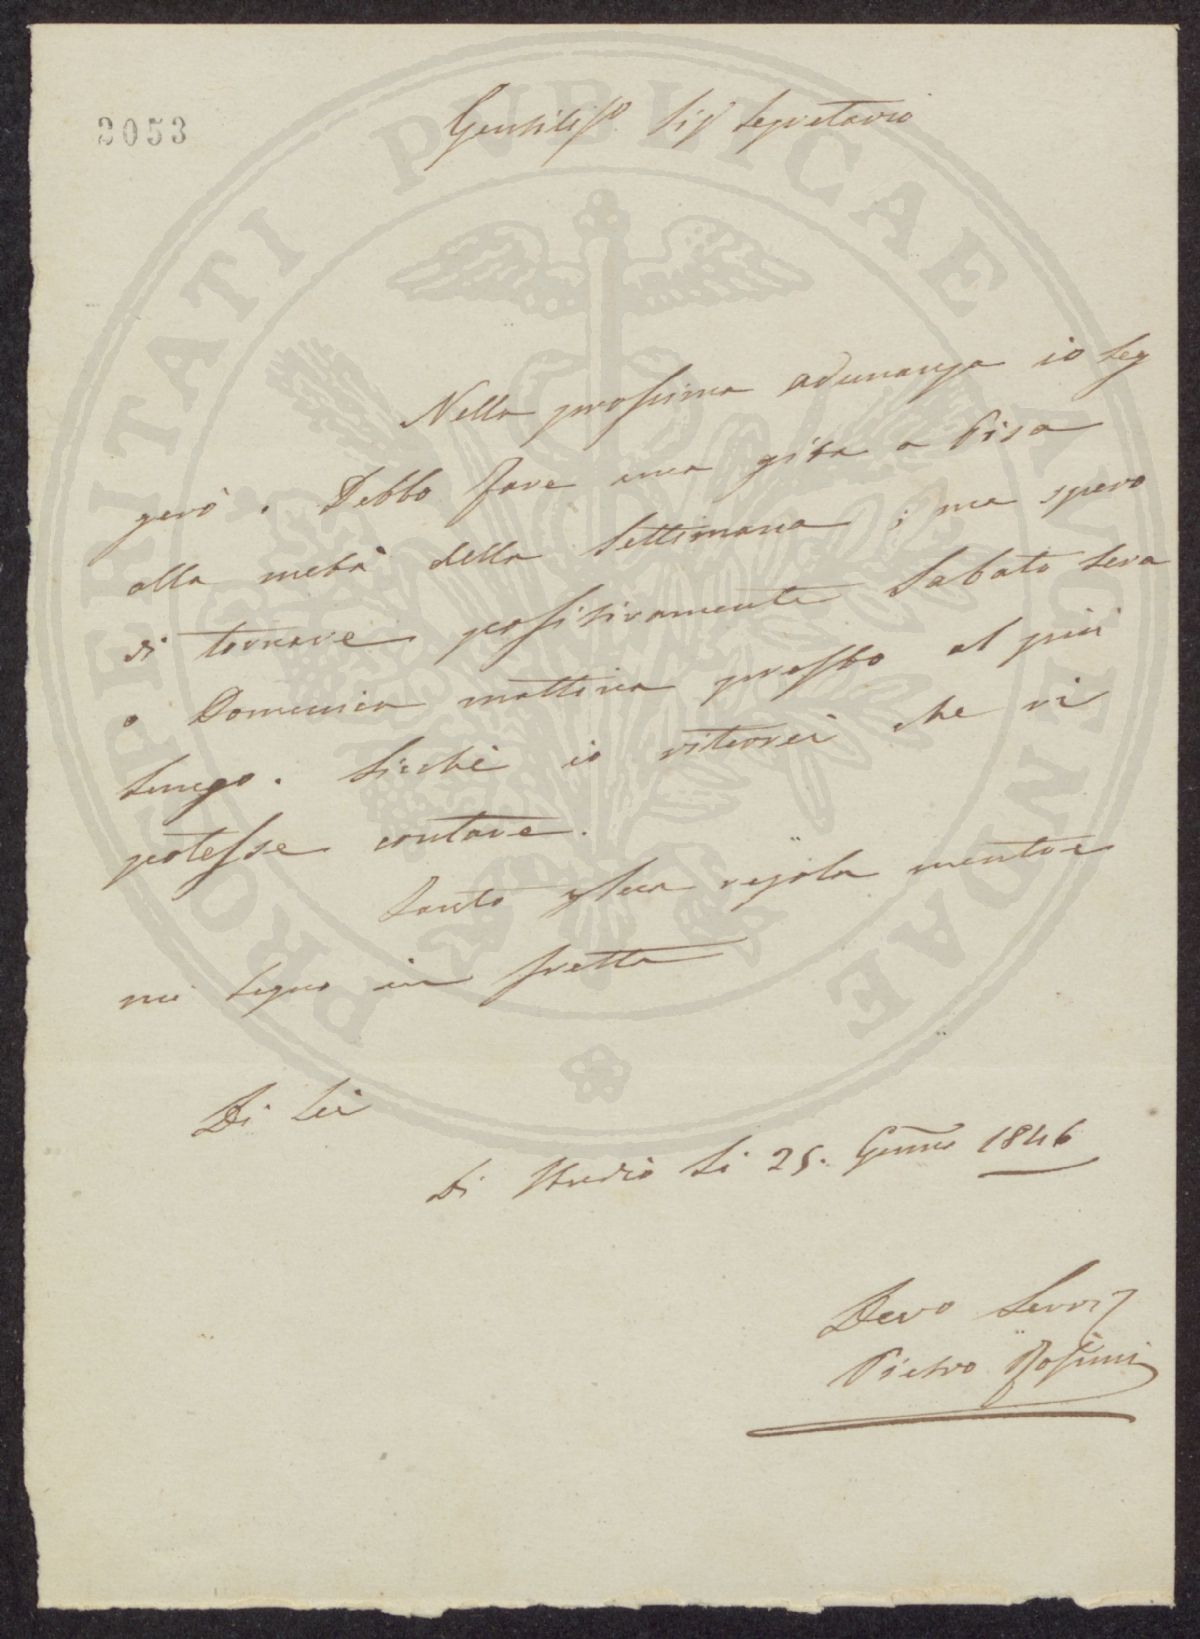 2053
Gentiliss.o Sig.r Segretario
Nella prossima adunanza io leg
gerò. Debbo fare una gita a Pisa
alla metà della settimana; ma spero
di tornare positivamente Sabato sera
o Domenica mattina presto al più
lungo. Sicchè io riterrei che vi
potesse contare.
Tanto p sua regola mentre
mi segno in fretta
Di Lei
Di Studio li 25. Genn.o 1846
Devo Serv.
Pietro
PROSPERITATI PVBLICAE AVGENDAE